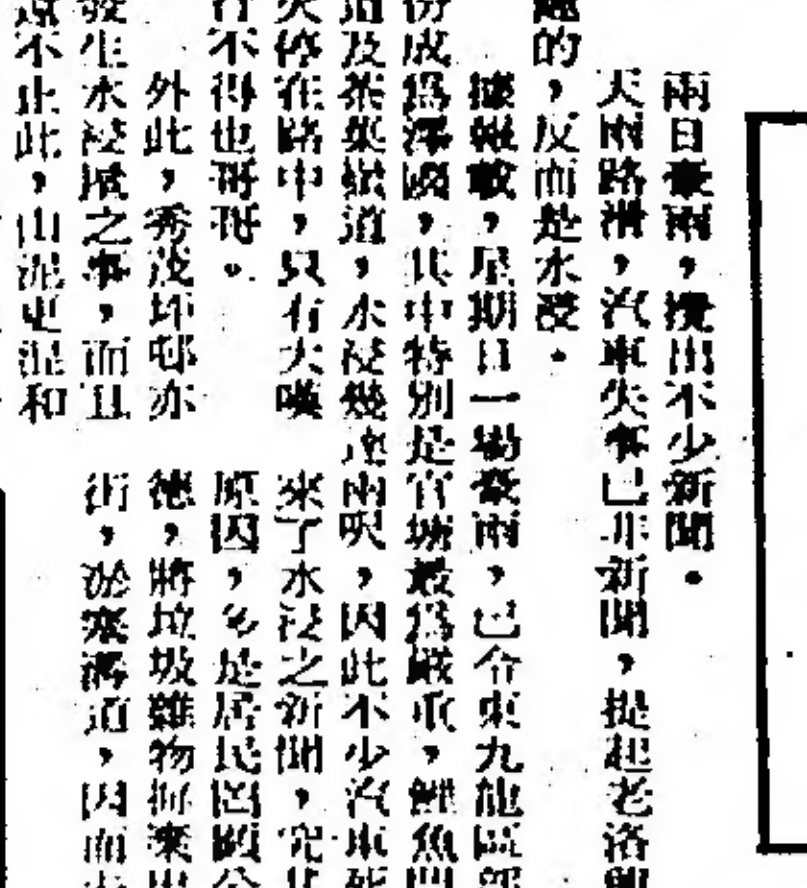 兩日豪雨，攪出不少新聞。
天雨路滑，汽車失事已非新聞，提起老洛
的，反而是水浸。
據報載，星期日一場豪雨，已令東九龍區部
份成爲澤國，其中特別是官塘最爲嚴重，鯉魚門
道及茶菓嶺道，水浸幾達兩呎，因此不少汽車死
火停在路中，只有大嘆
行不得也哥哥。
外此，秀茂坪邨亦
發生水浸屋之事，而且
不止此，山泥更混和
來了水浸之新聞，究其
原因，多是居民罔顧公
德，將垃圾雜物拋棄出
街，淤塞溝道，因而